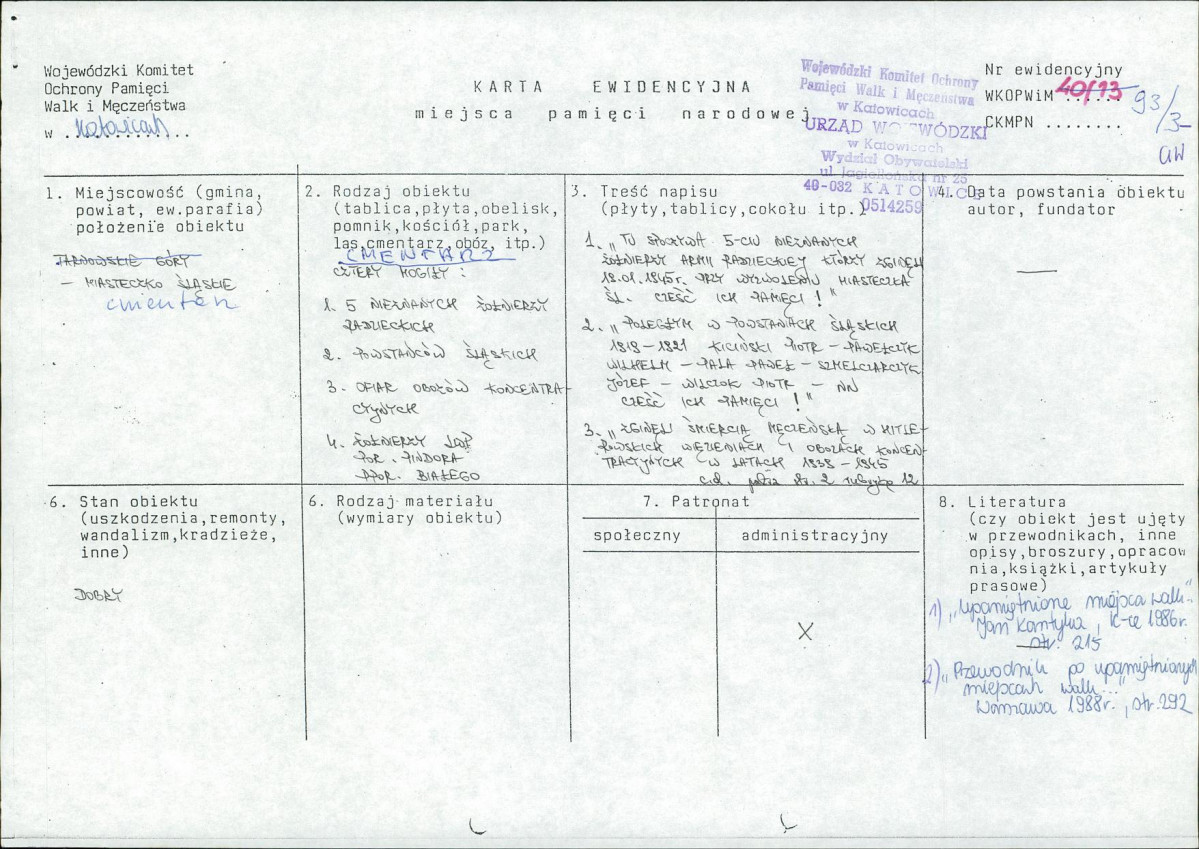 Wojewódzki Komitet
Ochrony Pamięci
Walk i Męczeństwa
w Katowicach
KARTA EWIDENCYJNA
miejsca pamięci narodowej
Wojewódzki Komitet Ochrony
Pamięci Walk i Męczeństwa
w Katowicach
URZĄD WOJEWÓDZKI
w Katowicach
Wydział Obywatelski
ul. Jagiellońska nr 25
40-032 KATOWICE
0514259
Nr ewidencyjny
WKOPWiM 40/13
CKMPN ........
93/3-
1. Miejscowość (gmina,
powiat, ew.parafia)
położenie obiektu
TARNOWSKIE GÓRY
– MIASTECZKO ŚLĄSKIE
cmentarz
2. Rodzaj obiektu
(tablica,płyta,obelisk,
pomnik,kościół,park,
las,cmentarz,obóz, itp.)
CMENTARZ
CZTERY MOGIŁY :
1. 5 NIEZNANYCH ŻOŁNIERZY
RADZIECKICH
2. POWSTAŃCÓW ŚLĄSKICH
3. OFIAR OBOZÓW KONCENTRA-
CYJNYCH
4. ŻOŁNIERZY LWP
POR. PINDORA
PPOR. BIAŁEGO
3. Treść napisu
(płyty,tablicy,cokołu itp.)
1. „TU SPOCZYWA 5-CIU NIEZNANYCH
ŻOŁNIERZY ARMII RADZIECKIEJ KTÓRZY ZGINĘLI
19.01.1945r. PRZY WYZWOLENIU MIASTECZKA
ŚL. CZEŚĆ ICH PAMIĘCI !"
2. „POLEGŁYM W POWSTANIACH ŚLĄSKICH
1919–1921 KICIŃSKI PIOTR – PAWEŁCZYK
WILHELM – PALA PAWEŁ – SZMELCZARCZYK
JÓZEF – WILCZOK PIOTR – NN
CZEŚĆ ICH PAMIĘCI !"
3. „ZGINĘLI ŚMIERCIĄ MĘCZEŃSKĄ W HITLE-
ROWSKICH WIĘZIENIACH I OBOZACH KONCEN-
TRACYJNYCH W LATACH 1939–1945
c.d. patrz str. 2 rubryka 12
4. Data powstania obiektu
autor, fundator
—
6. Stan obiektu
(uszkodzenia,remonty,
wandalizm,kradzieże,
inne)
DOBRY
6. Rodzaj materiału
(wymiary obiektu)
7. Patronat
społeczny
administracyjny
X
8. Literatura
(czy obiekt jest ujęty
w przewodnikach, inne
opisy,broszury,opracow
nia,książki,artykuły
prasowe)
1) „Upamiętnione miejsca walk..."
Jan Kantyka, K-ce 1986r.
str. 215
2) „Przewodnik po upamiętnionych
miejscach walk..."
Warszawa 1988r., str. 292